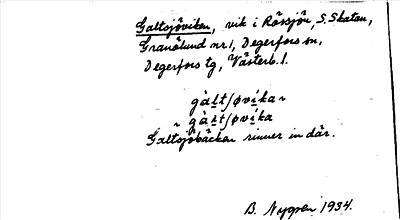 Galtsjöviken, vik i Rössjön, S. Skatan,
Granölund nr 1, Degerfors sn,
Degerfors tg, Västerb. l.
gàl̠t/øvi̠ka ~
~ gàl̠t/øvi̠ka
Galtsjöbäcken rinner in där.
B. Nygren 1934.